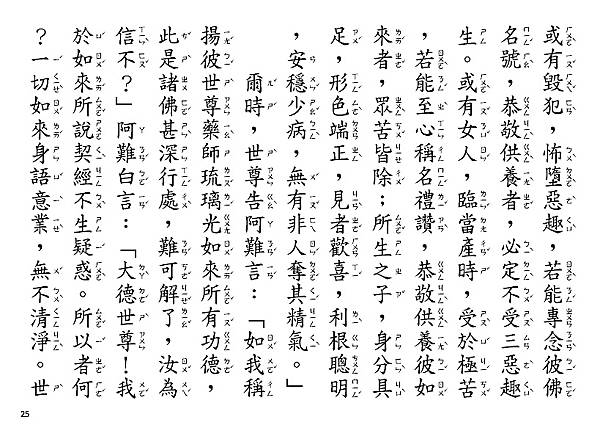 或有毀犯，怖墮惡趣，若能專念彼佛
名號，恭敬供養者，必定不受三惡趣
生。或有女人，臨當產時，受於極苦
，若能至心稱名禮讚，恭敬供養彼如
來者，眾苦皆除；所生之子，身分具
足，形色端正，見者歡喜，利根聰明
，安穩少病，無有非人奪其精氣。」
爾時，世尊告阿難言：「如我稱
揚彼世尊藥師琉璃光如來所有功德，
此是諸佛甚深行處，難可解了，汝為
信不？」阿難白言：「大德世尊！我
於如來所說契經不生疑惑。所以者何
？一切如來身語意業，無不清淨。世
25